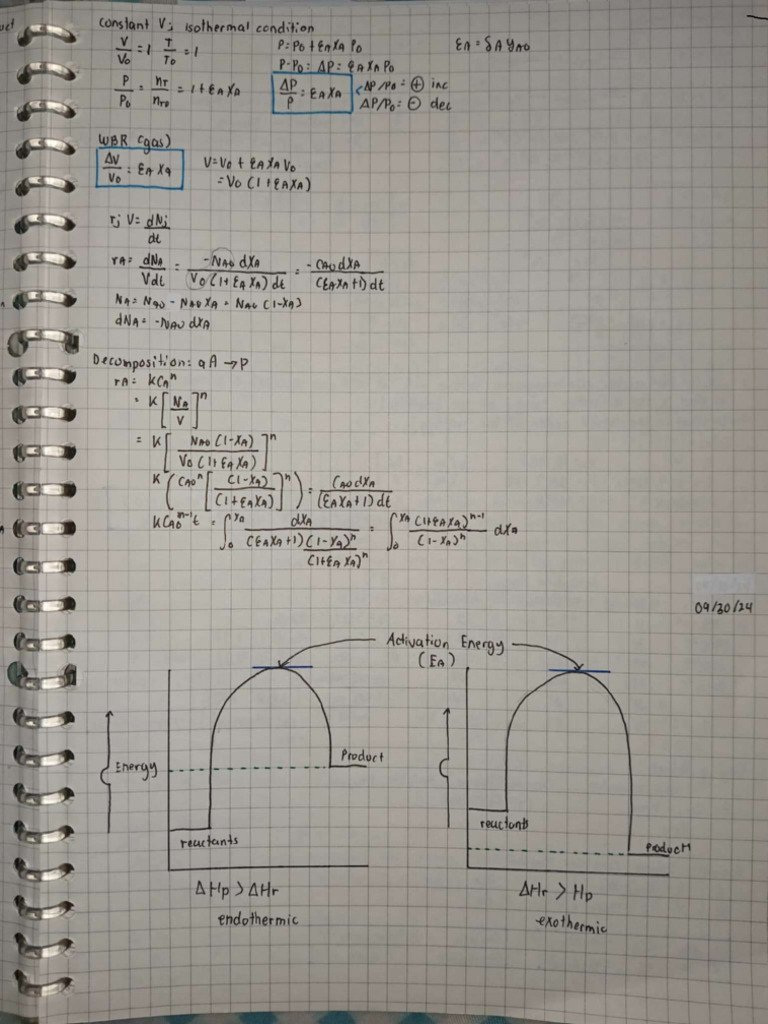 uct
constant V; isothermal condition
V/V0 = 1 T/T0 = 1
P/P0 = nT/nT0 = 1 + εA XA
P = P0 + εA XA P0
P - P0 = ΔP = εA XA P0
ΔP/P = εA XA
ΔP/P0 = ⊕ inc
ΔP/P0 = ⊖ dec
εA = δA yA0
WBR (gas)
ΔV/V0 = εA XA
V = V0 + εA XA V0
= V0 (1 + εA XA)
rj V = dNj/dt
rA = dNA/Vdt = -NA0 dXA/V0 (1 + εA XA) dt = -CA0 dXA/(εA XA + 1) dt
NA = NA0 - NA0 XA = NA0 (1-XA)
dNA = -NA0 dXA
Decomposition: aA → P
rA = KCA^n
= K[NA/V]^n
= K[NA0 (1-XA)/V0 (1 + εA XA)]^n
K(CA0^n [(1-XA)/(1 + εA XA)]^n) = CA0 dXA/(εA XA + 1) dt
KCA0^n-1 t = ∫0^XA dXA/(εA XA + 1) (1-XA)^n/(1 + εA XA)^n = ∫0^XA (1 + εA XA)^n-1/(1-XA)^n dXA
09/30/24
Activation Energy
(EA)
Energy
Product
reactants
ΔHp > ΔHr
endothermic
reactants
Product
ΔHr > Hp
exothermic